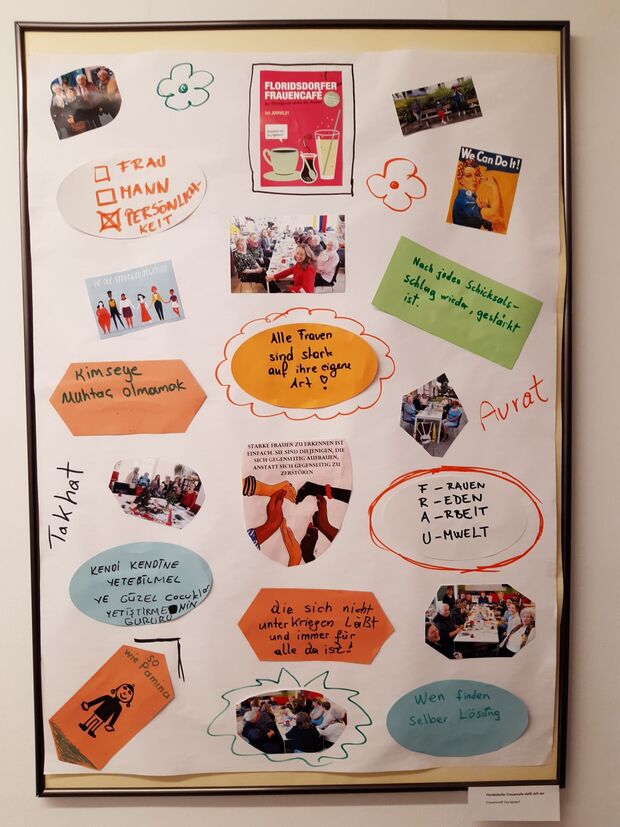 FLORIDSDORFER
FRAUENCAFÉ
We Can Do It!
FRAU
MANN
PERSÖNLICH-
KEIT
Nach jeden Schicksals-
schlag wieder, gestärkt
ist.
WE ARE STRONGER TOGETHER
Alle Frauen
sind stark
auf ihre eigene
Art!
Kimseye
Muhtaç olmamak
Avrat
STARKE FRAUEN ZU ERKENNEN IST
EINFACH. SIE SIND DIEJENIGEN, DIE
SICH GEGENSEITIG AUFBAUEN,
ANSTATT SICH GEGENSEITIG ZU
ZERSTÖREN
F - RAUEN
R - EDEN
A - RBEIT
U - MWELT
Takhat
KENDI KENDİNE
YETEBILMEL
VE GÜZEL COCUKLAR
YETİŞTİRMENİN
GURURU
die sich nicht
unterkriegen läßt
und immer für
alle da ist!
so
wie Pamina
Wen finden
selber Lösung
Floridsdorfer Frauencafe stellt sich vor
Frauentreff Floridsdorf